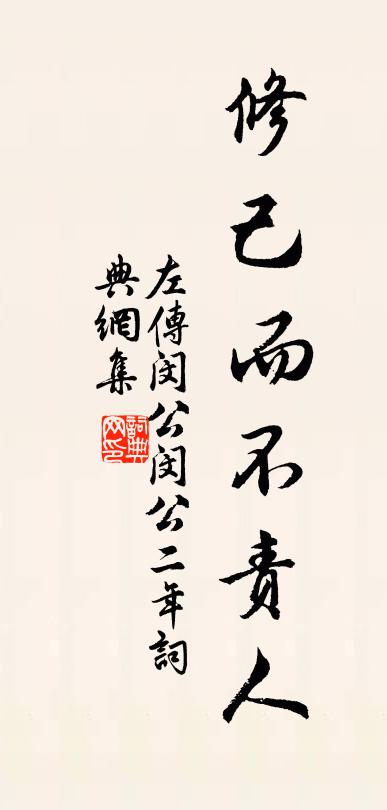 修己而不責人
左傳閔公閔公二年詞
典網集
詞典网印